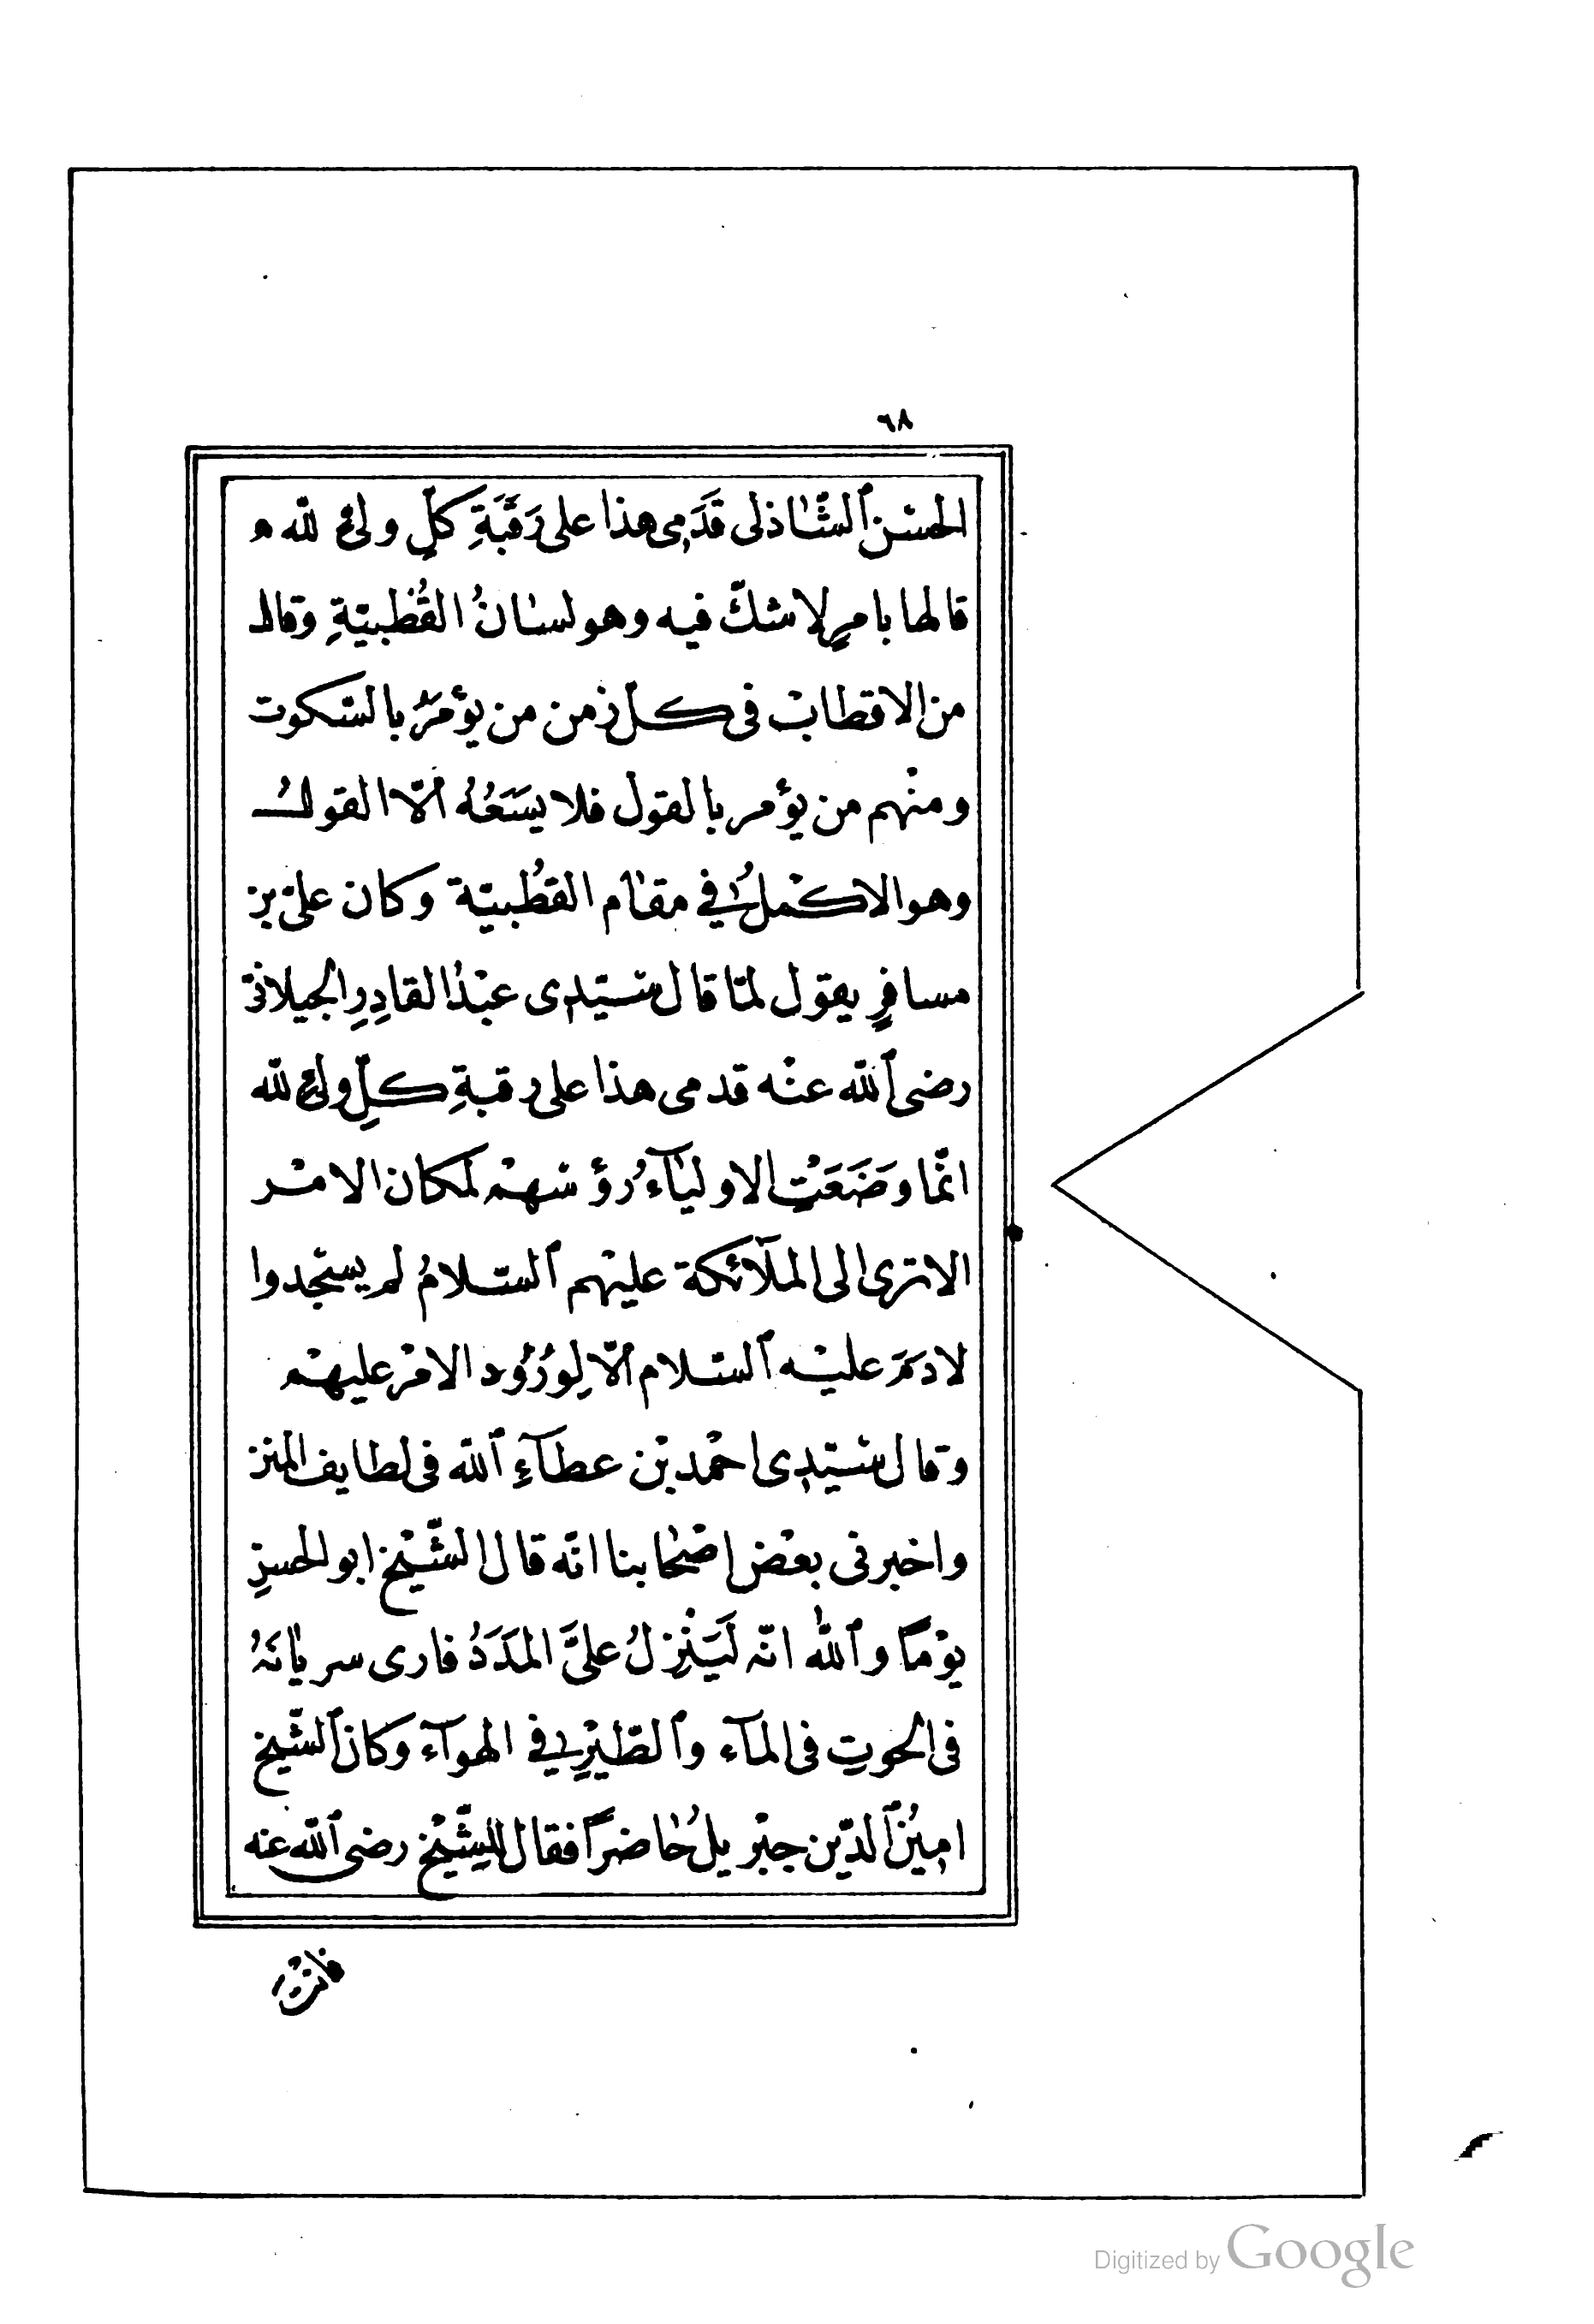 ٦٨
الحسن ٱلشّاذلى قَدَمِى هذا على رَقَبَةِ كلِّ ولىّ لله ه
قالها بامرٍ لا شكّ فيه وهو لسانُ القُطْبيّةِ وقال
من الاقطاب فى كلّ زمن من يؤمَرُ بالسّكوت
ومنْهم من يؤمر بالقول فلا يسَعُهُ الّا القول
وهو الاكْملُ في مقام القطْبيّة وكان علىّ بن
مسافرٍ يقول لمّا قال سيّدِى عبْدُ القادِرِ الجيلانىّ
رضى ٱلله عنْه قدمى هذا على رقبةِ كلِّ ولىّ لله
انّما وضَعَتِ الاولياۤءُ رُؤسَهمْ لمكان الامْر
الا ترى الى الملاۤئكة عليْهم ٱلسّلامُ لم يسْجدوا
لادمَ عليْه ٱلسّلام الّا لِوُرُود الامْر عليهمْ
وقال سيّدِى احْمد بْن عطاۤءِ ٱلله فى لطايف المنن
واخبرنى بعْض اصْحابنا انّه قال الشّيْخ ابو الحسنِ
يوْمًا وٱلله انّه لَيَنْزِلُ علىَّ المَدَدُ فارى سريانَهُ
فى الحوتِ فى الماۤء وٱلطّيْرِ في الهواۤء وكان ٱلشّيخ
امِيْنُ ٱلدّين جبْريلُ حاضرًا فقال للشّيْخ رضى ٱلله عنه
فانتَ
Digitized by Google